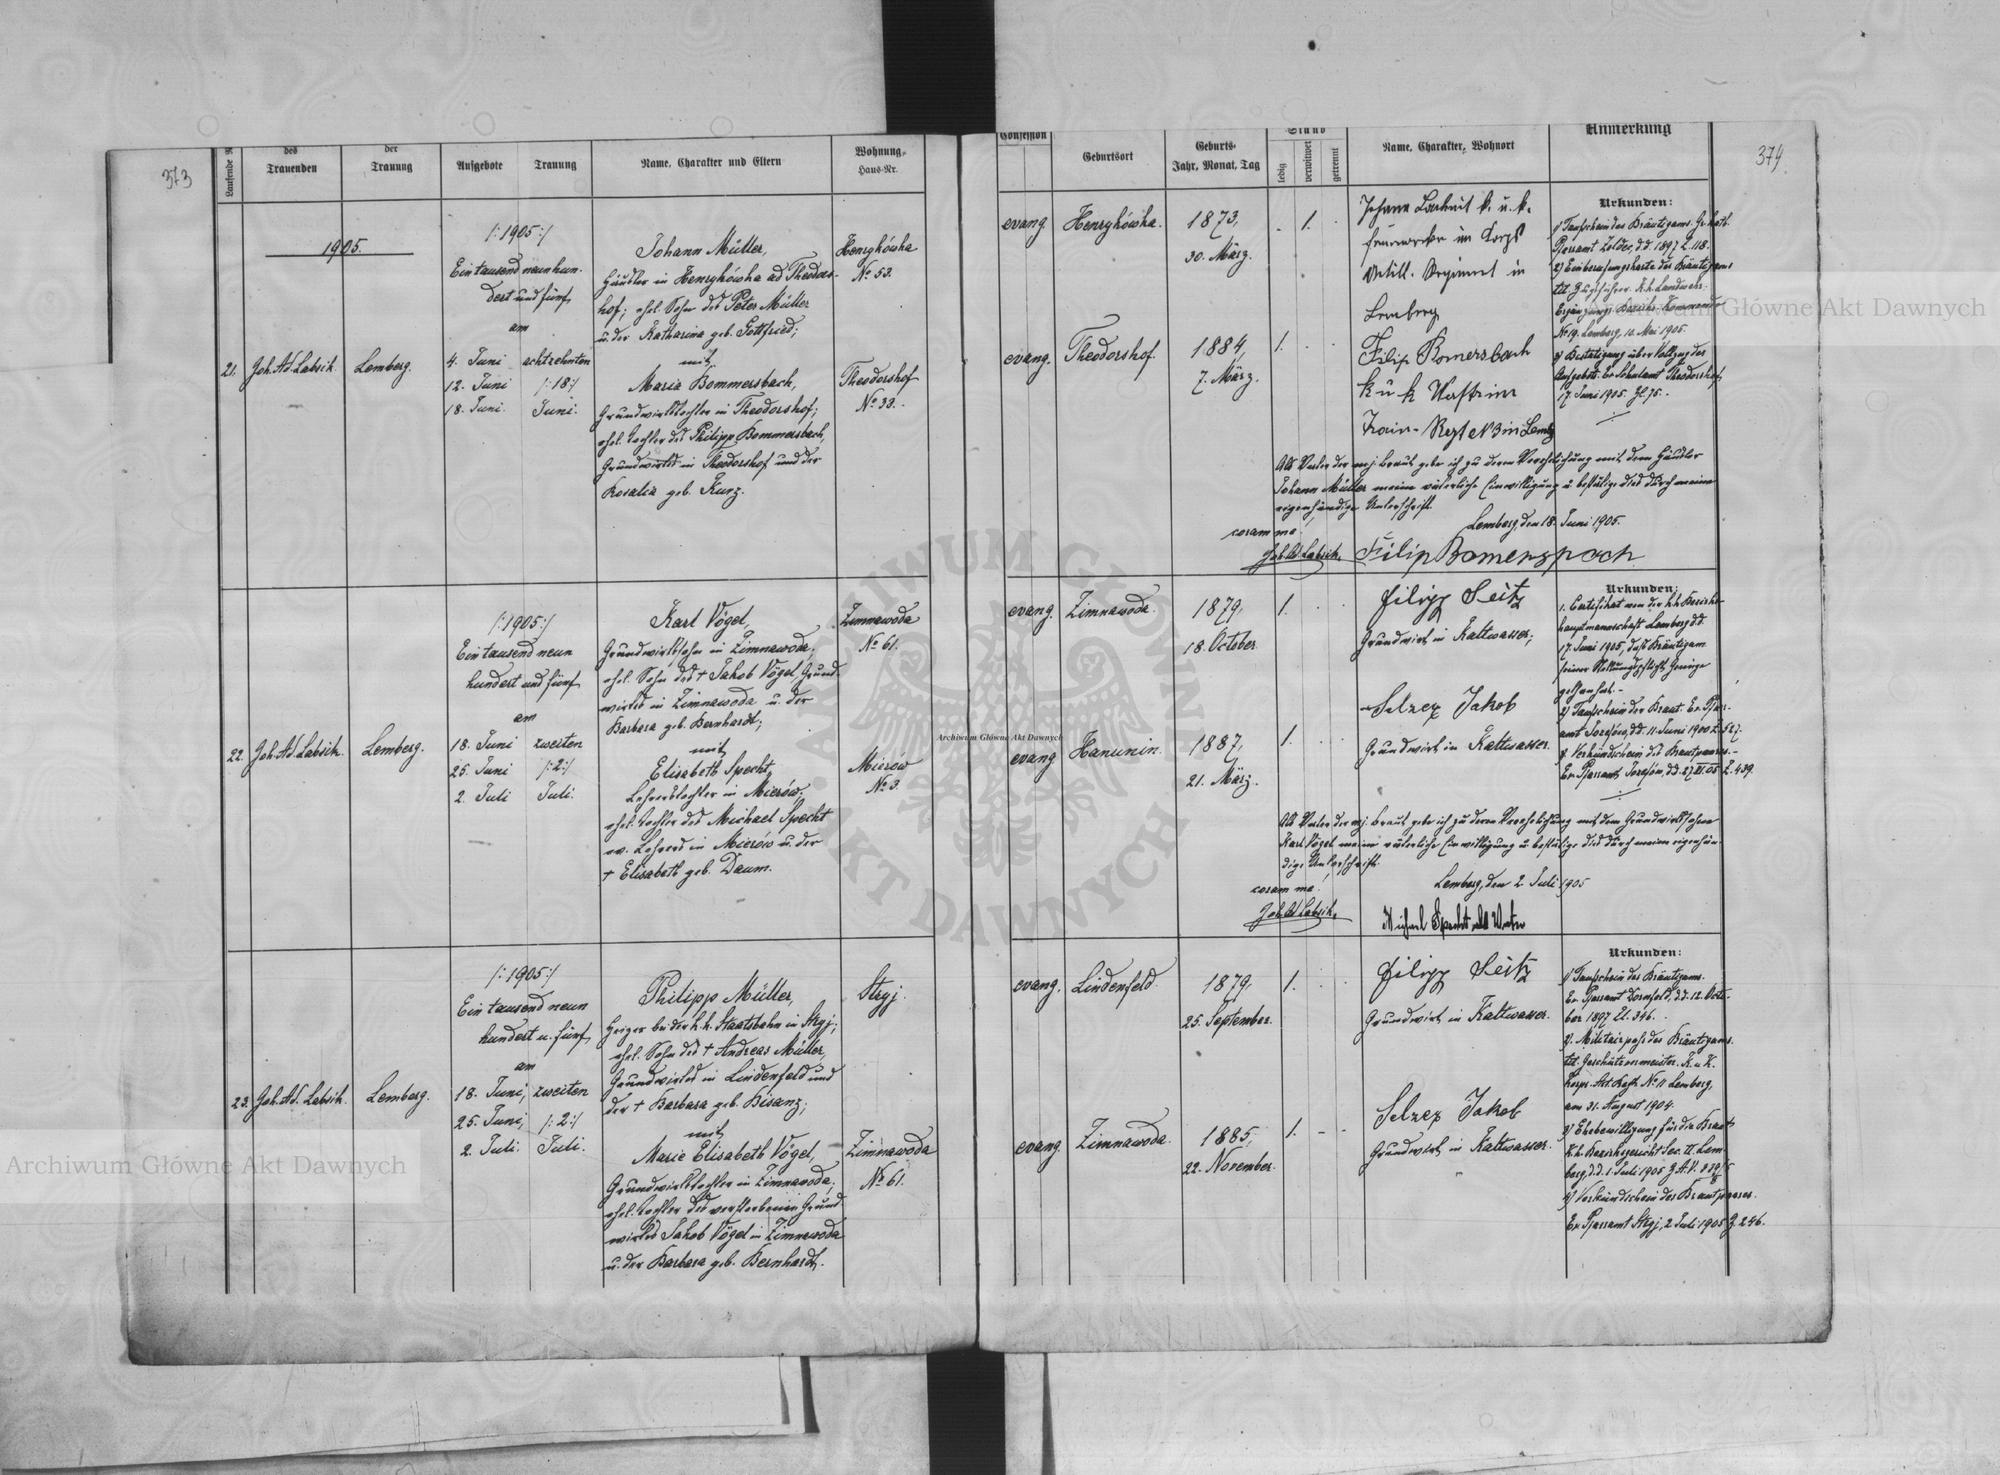 373
Laufende N
des
Trauenden
der
Trauung
Aufgebote
Trauung
Name, Charakter und Eltern
Wohnung,
Haus-Nr.
1905.
21.
Joh. Ad. Labsik.
Lemberg.
/:1905:/
Ein tausend neunhun-
dert und fünf
am
4. Juni achtzehnten
12. Juni /:18:/
18. Juni. Juni.
Johann Müller,
Häusler in Henrykówka ad Theodors-
hof; ehel. Sohn des Peter Müller
u. der Katharina geb. Gottfried;
mit
Maria Bommersbach,
Grundwirtstochter in Theodorshof;
ehel. Tochter des Philipp Bommersbach,
Grundwirtes in Theodorshof und der
Rosalia geb. Kurz.
Henrykówka
No 53.
Theodorshof
No 33.
22.
Joh. Ad. Labsik.
Lemberg.
/:1905:/
Ein tausend neun
hundert und fünf
am
18. Juni zweiten
25. Juni /:2:/
2. Juli Juli.
Karl Vögel,
Grundwirtssohn in Zimnawoda;
ehel. Sohn des † Jakob Vögel, Grund-
wirtes in Zimnawoda u. der
Barbara geb. Bernhardt;
mit
Elisabeth Specht,
Lehrerstochter in Mierów;
ehel. Tochter des Michael Specht
ev. Lehrers in Mierów u. der
† Elisabeth geb. Daum.
Zimnawoda
No 61.
Mierów
No 3.
23.
Joh. Ad. Labsik.
Lemberg.
/:1905:/
Ein tausend neun
hundert u. fünf
am
18. Juni, zweiten
25. Juni, /:2:/
2. Juli. Juli.
Philipp Müller,
Heizer bei der k. k. Staatsbahn in Stryj;
ehel. Sohn des † Andreas Müller,
Grundwirtes in Lindenfeld und
der † Barbara geb. Bisanz;
mit
Marie Elisabeth Vögel,
Grundwirtstochter in Zimnawoda;
ehel. Tochter des verstorbenen Grund
wirtes Jakob Vögel in Zimnawoda
u. der Barbara geb. Bernhardt.
Stryj.
Zimnawoda
No 61.
374.
Confession
Geburtsort
Geburts-
Jahr, Monat, Tag
Stand
ledig
verwitwet
getrennt
Name, Charakter, Wohnort
Anmerkung
evang.
Henrykówka.
1873,
30. März.
. 1. .
Johann k. u. k.
Feuerwerker im Corps
Artill. Regiment in
Lemberg
evang.
Theodorshof.
1884,
7. März.
1. . .
Filip Bomersbach
k u k
Train-Regt N 3 in Lembg
Urkunden:
1) Taufschein des Bräutigams. Gr. kath.
Pfarramt d.d. 1897 Z. 118.
2) Einberufungskarte des Bräutigams
tit. Zugsführer. k. k. Landwehr.
Ergänzungs Bezirks-Kommando
Nr 19. Lemberg, 10. Mai 1905.
3) Bestätigung über Vollzug des
Aufgebots. Ev. Schulamt Theodorshof,
17. Juni 1905. Zl. 75.
Als Vater der mj. Braut gebe ich zu deren Verehelichung mit dem Häusler
Johann Müller meine väterliche Einwilligung u. bestätige dies durch meine
eigenhändige Unterschrift.
Lemberg, den 18. Juni 1905.
coram me:
Joh. Ad. Labsik.
Filip Bomerspach
evang.
Zimnawoda.
1879,
18. October.
1. . .
Filipp Seitz
Grundwirt in Kaltwasser;
evang
Hanunin.
1887,
21. März.
1. . .
Selzer Jakob
Grundwirt in Kaltwasser.
Urkunden:
1. Certifikat von der k. k. Bezirks-
hauptmannschaft Lemberg d.d.
17. Juni 1905, daß Bräutigam
seiner Stellungspflicht Genüge
gethan hat. -
2) Taufschein der Braut. Ev. Pfarr-
amt Josefów, d.d. 11. Juni 1900 Z. 527.
3) Verkündschein des Brautpaares. -
Ev. Pfarramt Josefów, d.d. 27/VI.05 Z. 439.
Als Vater der mj. Braut gebe ich zu deren Verehelichung mit dem Grundwirtssohne
Karl Vögel meine väterliche Einwilligung u. bestätige dies durch meine eigenhän-
dige Unterschrift.
Lemberg, den 2. Juli 1905
coram me:
Joh. Ad. Labsik.
Michael Specht als Vater
evang.
Lindenfeld.
1879,
25. September.
1. . .
Filipp Seitz
Grundwirt in Kaltwasser.
evang.
Zimnawoda.
1885,
22. November.
1. - -
Selzer Jakob
Grundwirt in Kaltwasser.
Urkunden:
1) Taufschein des Bräutigams.
Ev. Pfarramt Dornfeld, d.d. 12. Octo-
ber 1897 Zl. 346.
2. Militairpass des Bräutigams.
tit. Geschützvormeister. K. u. K.
Korps. Art. Regt. No 11 Lemberg,
am 31. August 1904.
3) Ehebewilligung für die Braut
k. k. Bezirksgericht Sec. II. Lem-
berg, d.d. 1. Juli 1905
4) Verkündschein des Brautpaares.
Ev. Pfarramt Stryj, 2 Juli 1905 Z. 246.
Archiwum Główne Akt Dawnych
Archiwum Główne Akt Dawnych
Archiwum Główne Akt Dawnych
ARCHIWUM GŁÓWNE AKT DAWNYCH